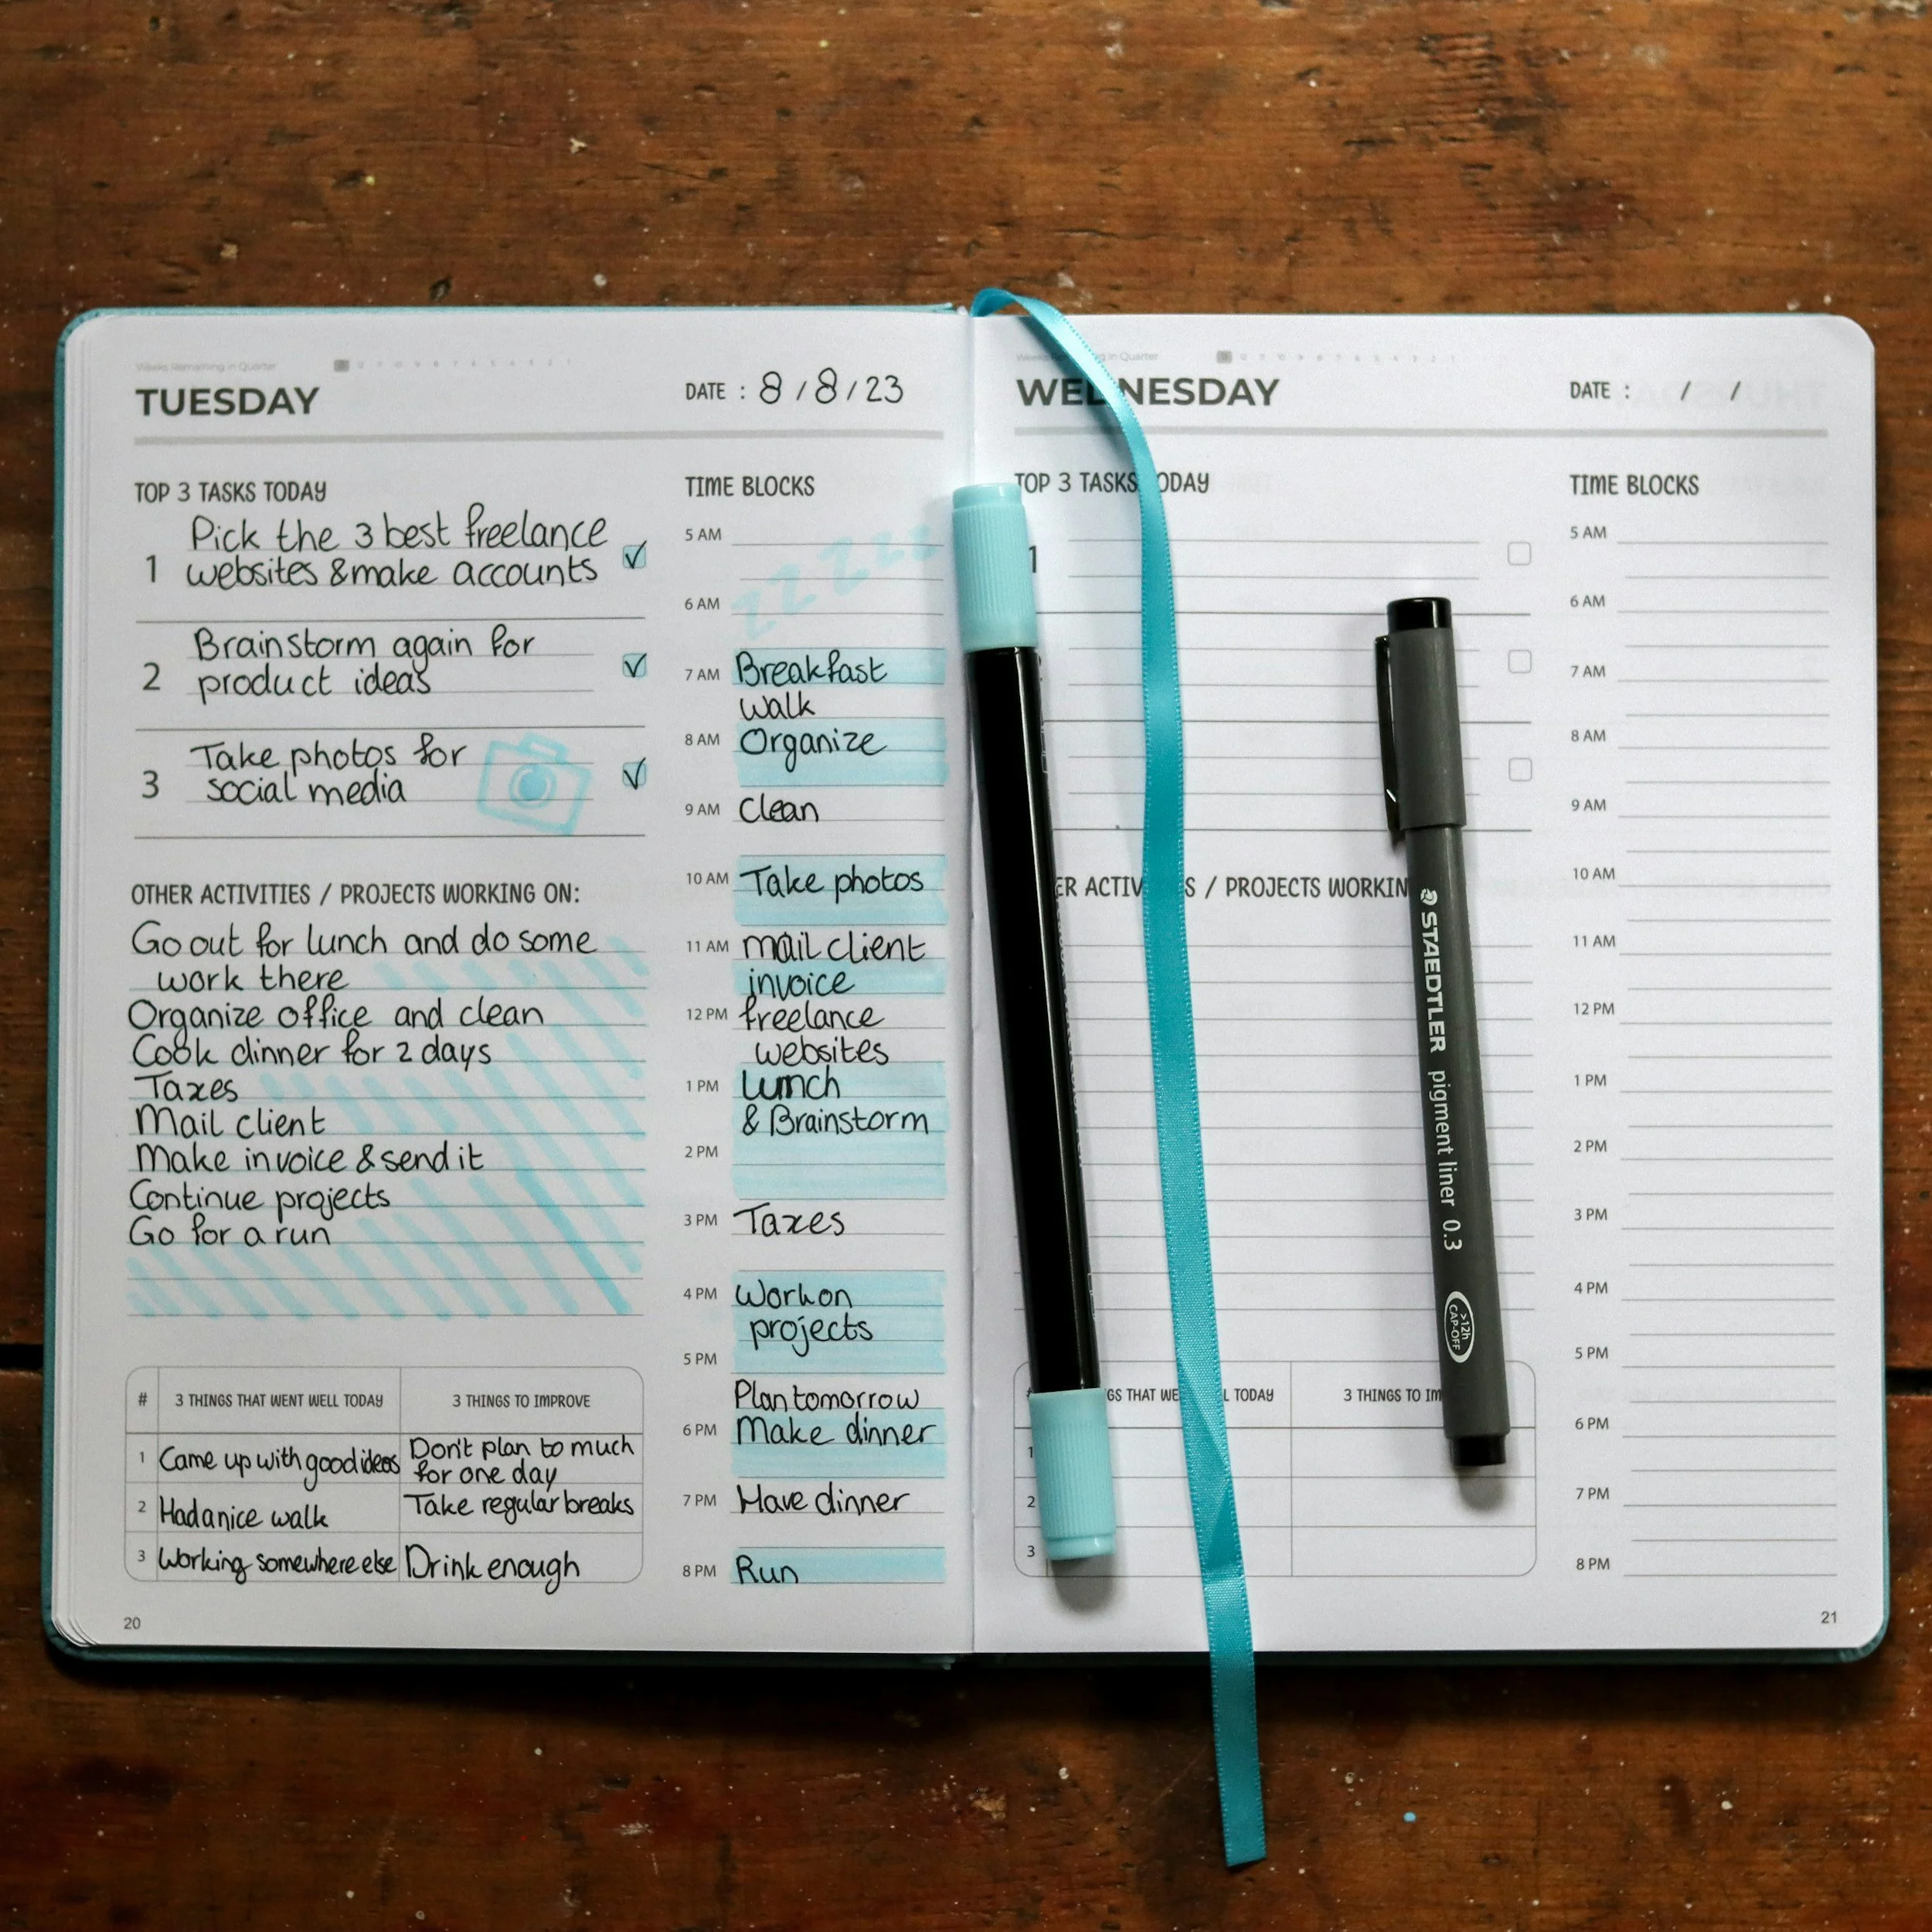 Weeks Remaining in Quarter
TUESDAY
DATE : 8 / 8 / 23
TOP 3 TASKS TODAY
1
Pick the 3 best freelance
websites & make accounts
2
Brainstorm again for
product ideas
3
Take photos for
social media
OTHER ACTIVITIES / PROJECTS WORKING ON:
Go out for lunch and do some
work there
Organize office and clean
Cook dinner for 2 days
Taxes
Mail client
Make invoice & send it
Continue projects
Go for a run
# 3 THINGS THAT WENT WELL TODAY 3 THINGS TO IMPROVE
1 Came up with good ideas Don't plan to much
for one day
2 Had a nice walk Take regular breaks
3 Working somewhere else Drink enough
20
TIME BLOCKS
zzzzzz
5 AM
6 AM
7 AM Breakfast
walk
8 AM Organize
9 AM Clean
10 AM Take photos
11 AM mail client
invoice
12 PM freelance
websites
1 PM Lunch
& Brainstorm
2 PM
3 PM Taxes
4 PM Work on
projects
5 PM
Plan tomorrow
6 PM Make dinner
7 PM Have dinner
8 PM Run
in Quarter
WEDNESDAY
DATE : / /
TOP 3 TASKS TODAY
1
ER ACTIV S / PROJECTS WORKIN
GS THAT WE L TODAY 3 THINGS TO IM
1
2
3
TIME BLOCKS
5 AM
6 AM
7 AM
8 AM
9 AM
10 AM
11 AM
12 PM
1 PM
2 PM
3 PM
4 PM
5 PM
6 PM
7 PM
8 PM
21
STAEDTLER pigment liner 0.3
>12h
CAP-OFF